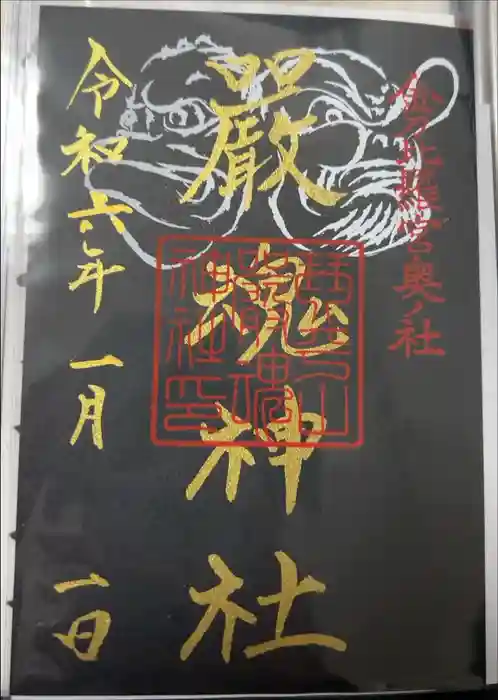 金刀比羅宮奥ノ社
嚴魂神社
令和六年一月一日